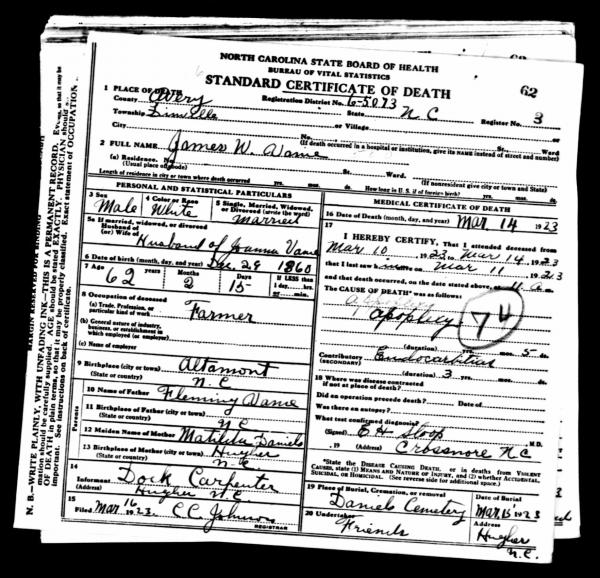 62
NORTH CAROLINA STATE BOARD OF HEALTH
BUREAU OF VITAL STATISTICS
STANDARD CERTIFICATE OF DEATH
62
1 PLACE OF DEATH
County Avery Registration District No. 6-5073 State N C Register No. 3
Township Linville or Village
City No. St. Ward
(If death occurred in a hospital or institution, give its NAME instead of street and number)
2 FULL NAME James W. Vame
(a) Residence. No. St. Ward.
(Usual place of abode) (If nonresident give city or town and State)
Length of residence in city or town where death occurred yrs. mos. ds. How long in U. S. if of foreign birth? yrs. mos. ds.
PERSONAL AND STATISTICAL PARTICULARS
3 Sex Male
4 Color or Race White
5 Single, Married, Widowed, or Divorced (write the word) Married
5a If married, widowed, or divorced
Husband of
(or) Wife of Husband of Joanna Vame
6 Date of birth (month, day, and year) Dec. 29 1860
7 Age 62 years Months 2 Days 15 If LESS than
1 day, hrs.
or min.
8 Occupation of deceased
(a) Trade, Profession, or
particular kind of work Farmer
(b) General nature of industry,
business, or establishment in
which employed (or employer)
(c) Name of employer
9 Birthplace (city or town) Altamont
(State or country) N. C
10 Name of Father Fleming Vame
11 Birthplace of Father (city or town)
(State or country) N C
12 Maiden Name of Mother Matilda Daniels
13 Birthplace of Mother (city or town) Hughes
(State or country) N. C.
Parents
14
Informant Dock Carpenter
(Address) Hughes N.C
15
Filed Mar. 16 1923. C C Johnson
REGISTRAR
MEDICAL CERTIFICATE OF DEATH
16 Date of Death (month, day, and year) Mar 14 1923
17
I HEREBY CERTIFY, That I attended deceased from
Mar 10, 1923 to Mar 14, 1923
that I last saw him on Mar 11 1923
and that death occurred, on the date stated above, at 11 a m.
The CAUSE OF DEATH was as follows:
apoplexy
74
(duration) yrs. mos. 5 ds.
Contributory Endocarditis
(SECONDARY)
(duration) 3 yrs. mos. ds.
18 Where was disease contracted
if not at place of death?
Did an operation precede death? Date of
Was there an autopsy?
What test confirmed diagnosis?
(Signed) E H Sloop M.D.
, 19 (Address) Crossnore N C
*State the DISEASE CAUSING DEATH, or in deaths from VIOLENT
CAUSES, state (1) MEANS AND NATURE OF INJURY, and (2) whether ACCIDENTAL,
SUICIDAL, or HOMICIDAL. (See reverse side for additional space.)
19 Place of Burial, Cremation, or removal Daniels Cemetery
Date of Burial Mar. 15 1923
20 Undertaker Friends
Address Hughes N.C.
MARGIN RESERVED FOR BINDING
N. B.—WRITE PLAINLY, WITH UNFADING INK—THIS IS A PERMANENT RECORD.
mation should be carefully supplied. AGE should be stated EXACTLY. PHYSICIAN should
OF DEATH in plain terms, so that it may be properly classified. Exact statement of OCCUPATION
important. See instructions on back of certificate.